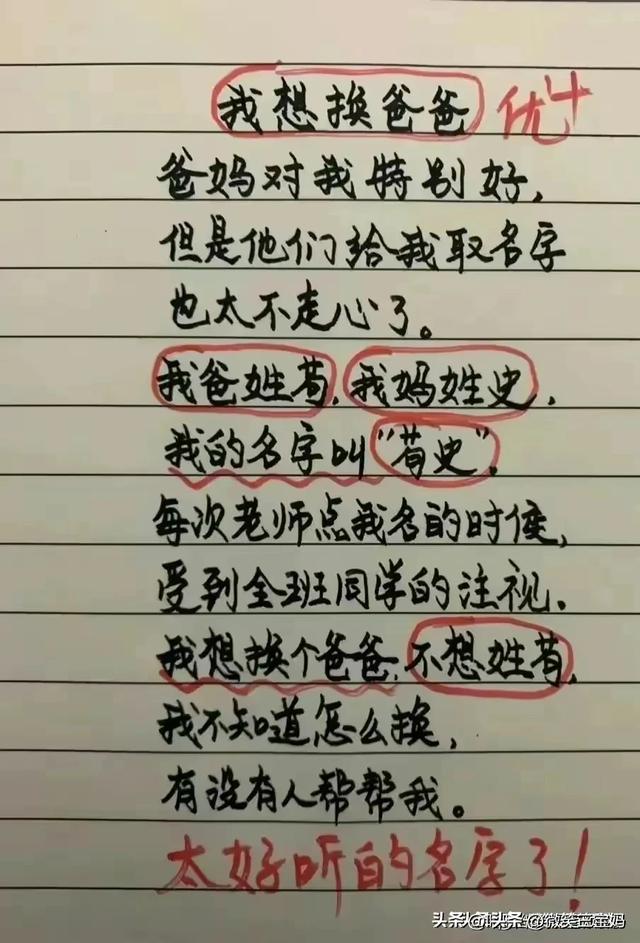 我想换爸爸 优+
爸妈对我特别好，
但是他们给我取名字
也太不走心了。
我爸姓苟，我妈姓史，
我的名字叫“苟史”。
每次老师点我名的时候，
受到全班同学的注视。
我想换个爸爸，不想姓苟，
我不知道怎么换，
有没有人帮帮我。
太好听的名字了！
头条